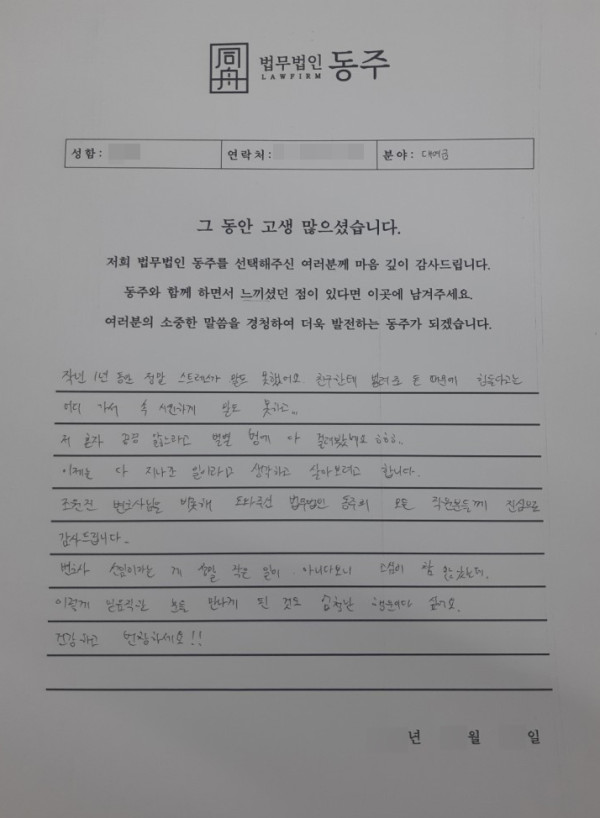 同舟
법무법인 동주
LAWFIRM
성함: 연락처: 분야: 대여금
그 동안 고생 많으셨습니다.
저희 법무법인 동주를 선택해주신 여러분께 마음 깊이 감사드립니다.
동주와 함께 하면서 느끼셨던 점이 있다면 이곳에 남겨주세요.
여러분의 소중한 말씀을 경청하여 더욱 발전하는 동주가 되겠습니다.
작년 1년 동안 정말 스트레스가 말도 못했어요. 친구한테 빌려준 돈 때문에 힘들다고는
어디 가서 속 시원하게 말도 못하고..
저 혼자 끙끙 앓느라고 별별 병에 다 걸려봤네요 ㅎㅎㅎ..
이제는 다 지나간 일이라고 생각하고 살아보려고 합니다.
변호사님을 비롯해 도와주신 법무법인 동주의 모든 직원분들께 진심으로
감사드립니다..
변호사 선임이라는 게 작은 일이 아니다보니 고심이 참 많았는데,
이렇게 믿음직한 분을 만나게 된 것도 엄청난 행운이다 싶어요.
건강하고 번창하세요!!
년 월 일